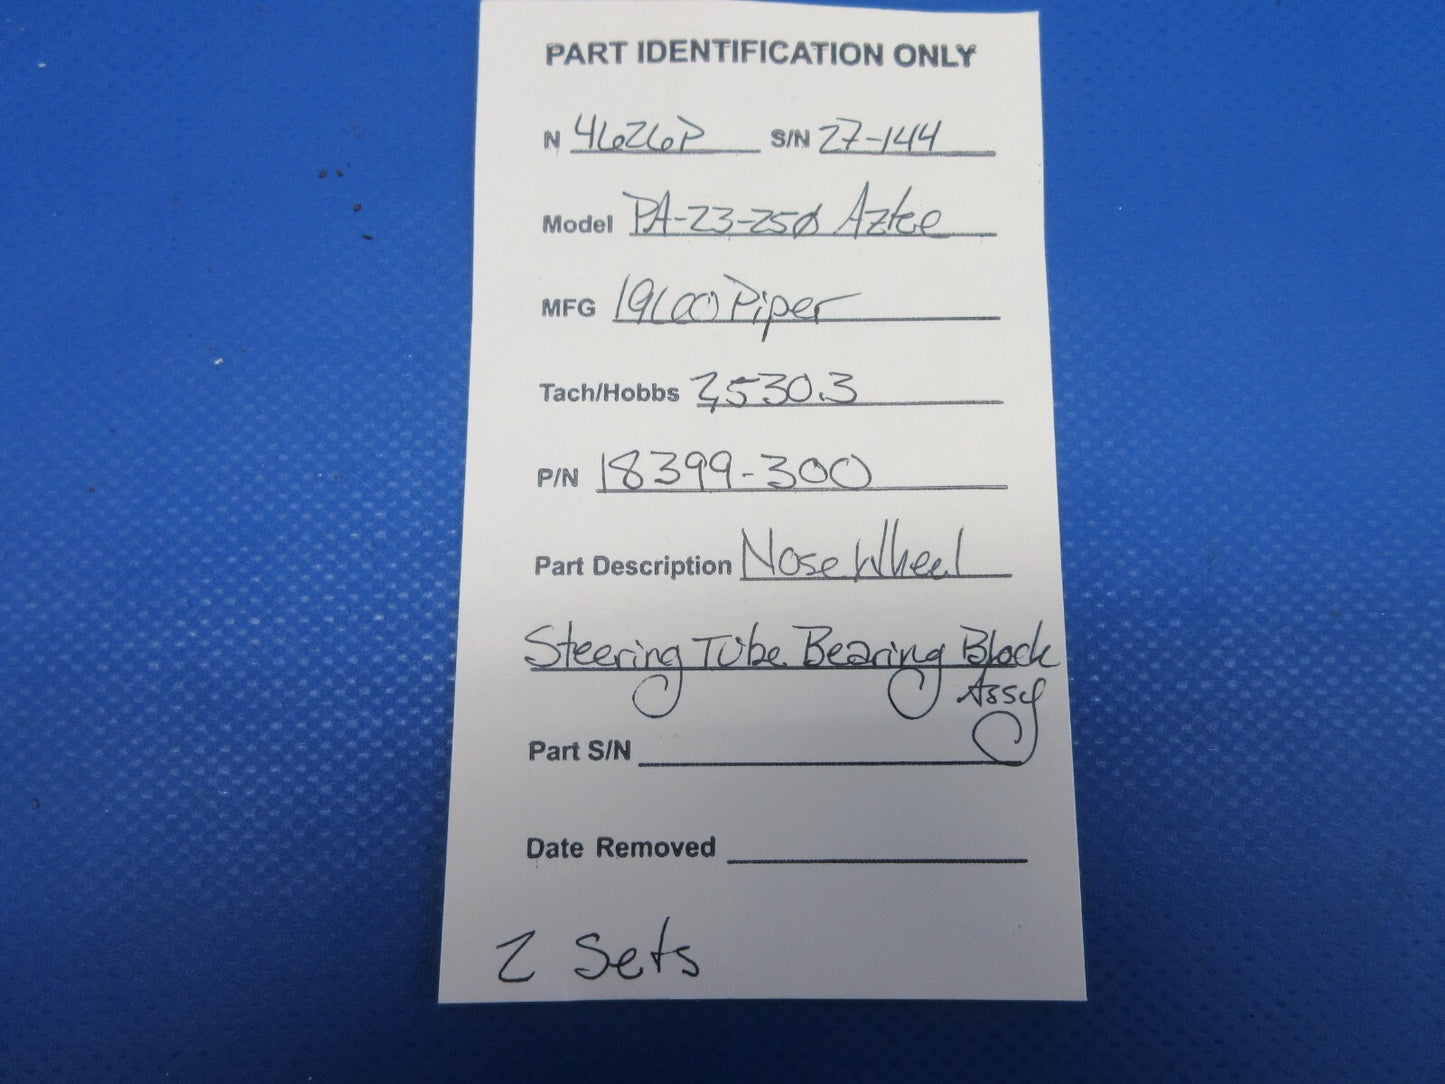 PART IDENTIFICATION ONLY
N 4626P S/N 27-144
Model PA-23-250 Aztec
MFG 1960 Piper
Tach/Hobbs 2,530.3
P/N 18399-300
Part Description Nose Wheel
Steering Tube Bearing Block
Assy
Part S/N
Date Removed
2 Sets